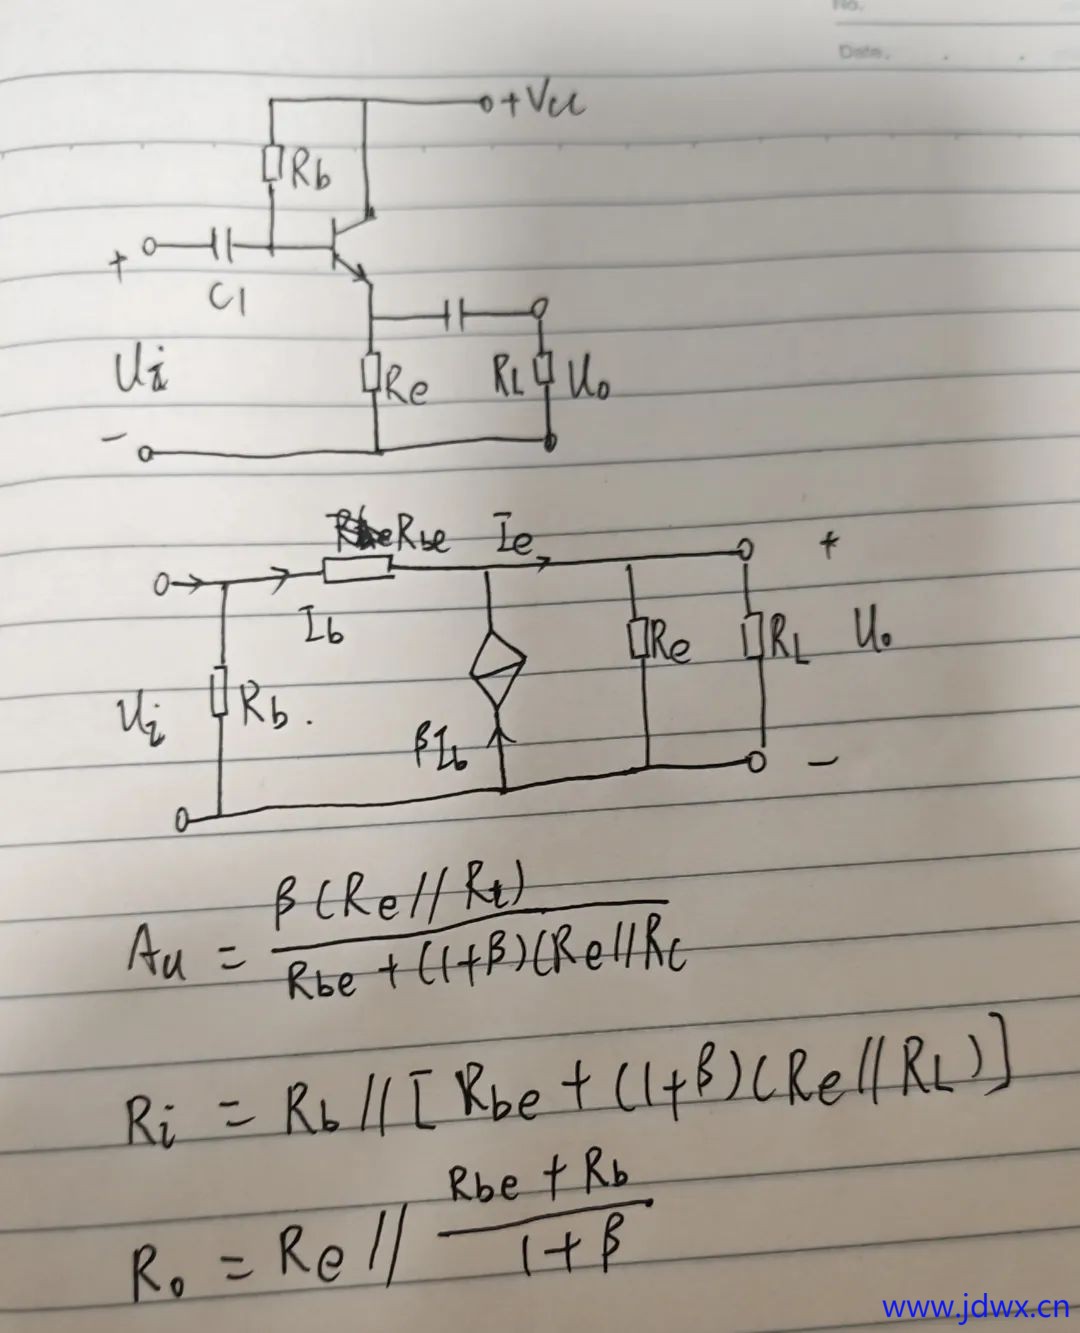 No.
Date.
+Vcc
Rb
+
C1
Ui
Re
RL
Uo
-
Rbe
Ie
+
Ib
Re
RL
Uo
Ui
Rb.
βIb
-
Au = β(Re//RL) / Rbe+(1+β)(Re//RL
Ri = Rb//[Rbe+(1+β)(Re//RL)]
Ro = Re// Rbe+Rb / 1+β
www.jdwx.cn